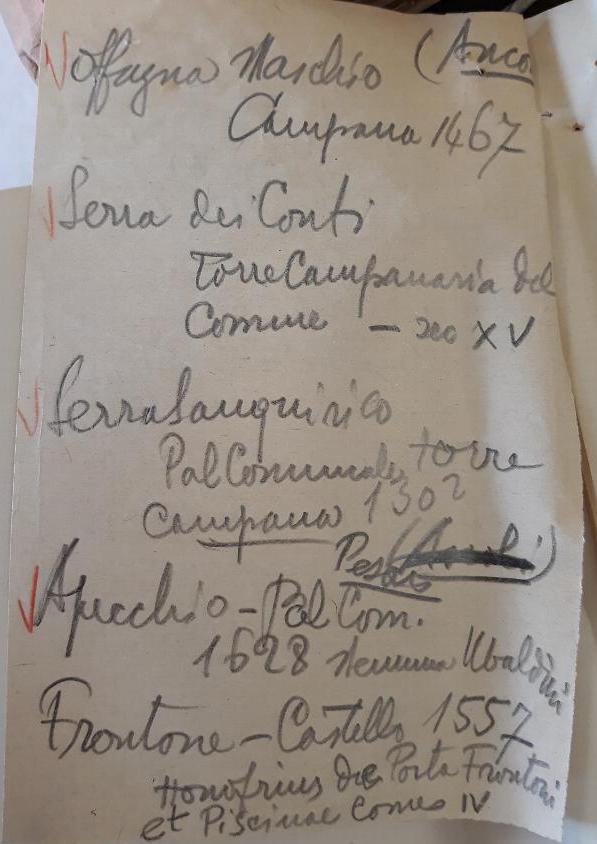 Offagna Maschio (Anco
Campana 1467
Serra dei Conti
Torre Campanaria del
Comune – sec XV
Serra Sanquirico
Pal Comunale, torre
Campana 1302
Pesaro
Apecchio – Pal Com.
1628 stemma Ubaldini
Frontone – Castello 1557
Honofrius de Porta Frontoni
et Piscinae Comes IV